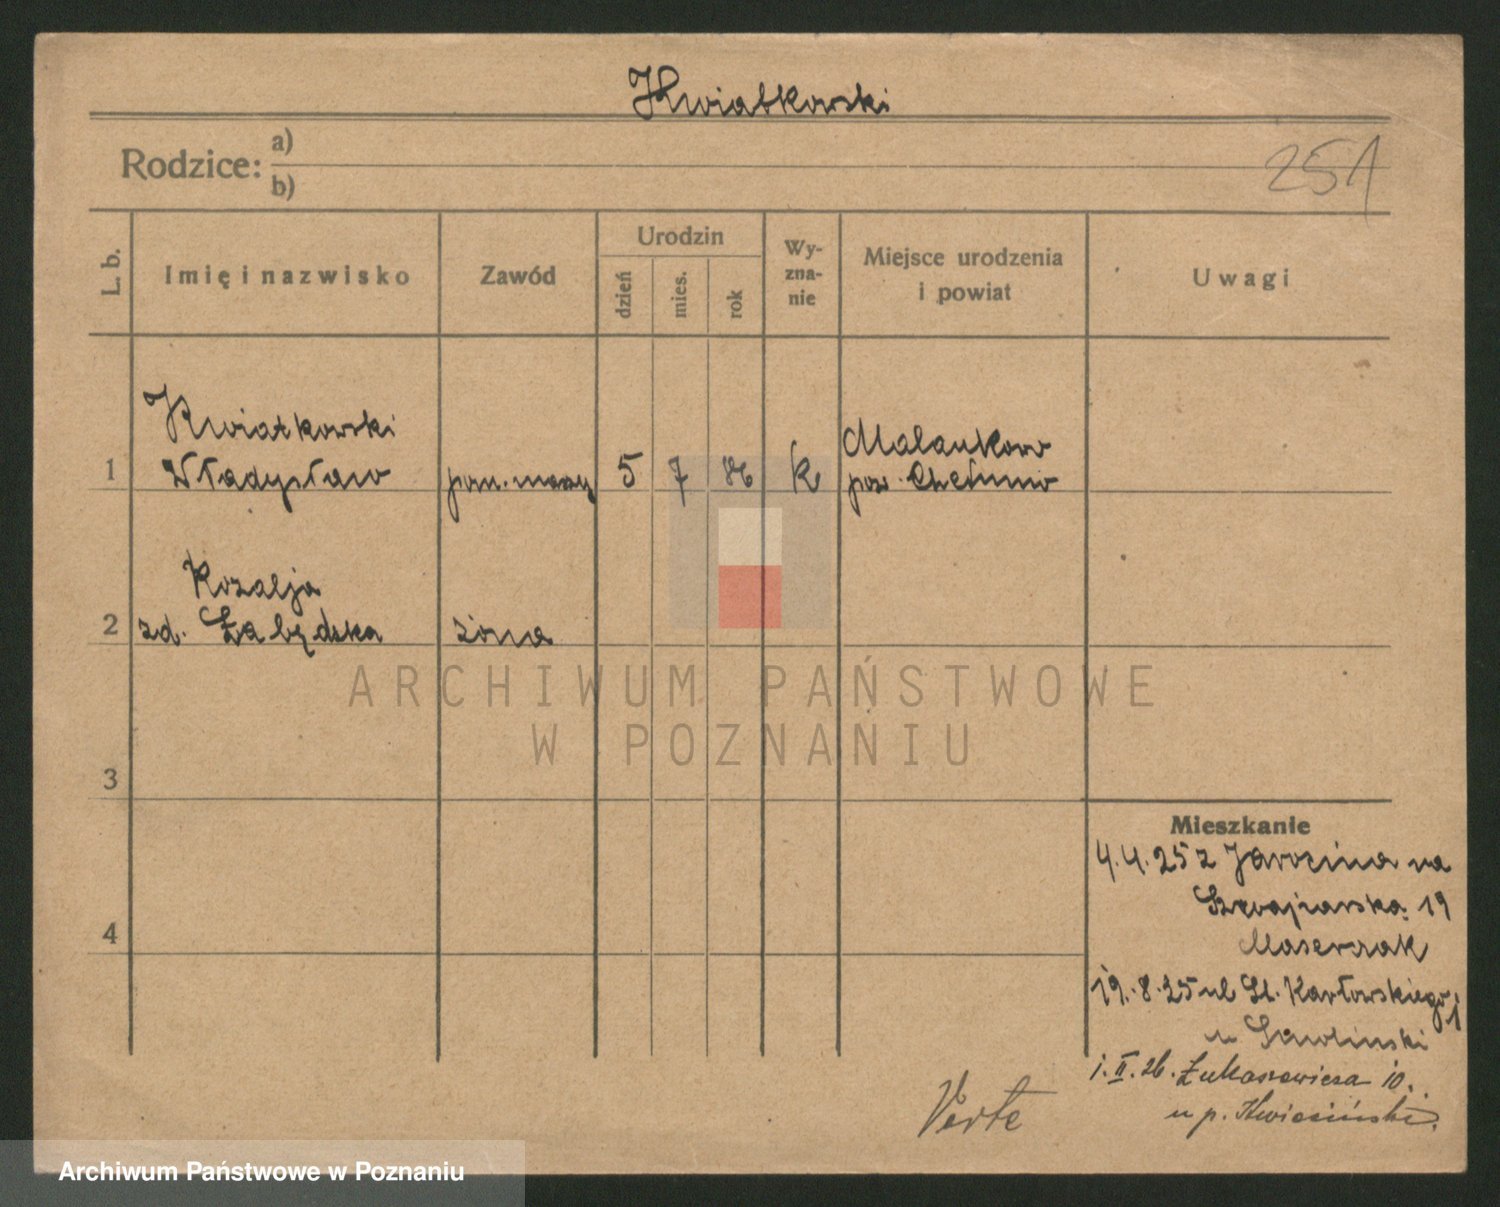 Kwiatkowski
Rodzice: a)
b)
251
L. b.
Imię i nazwisko
Zawód
Urodzin
dzień
mies.
rok
Wy-
zna-
nie
Miejsce urodzenia
i powiat
Uwagi
Kwiatkowski
1 Władysław
5 7 86 k
Malankowo
pow. Chełmno
Rozalja
2 zd. Łabędzka żona
ARCHIWUM PAŃSTWOWE
W POZNANIU
3
4
Mieszkanie
4.4.25 z Jarocina na
Szwajcarską 19
19.8.25 ul St. Karłowskiego 1
1.II.26. Łukaszewicza 10.
u p. Kwieciński.
Verte
Archiwum Państwowe w Poznaniu